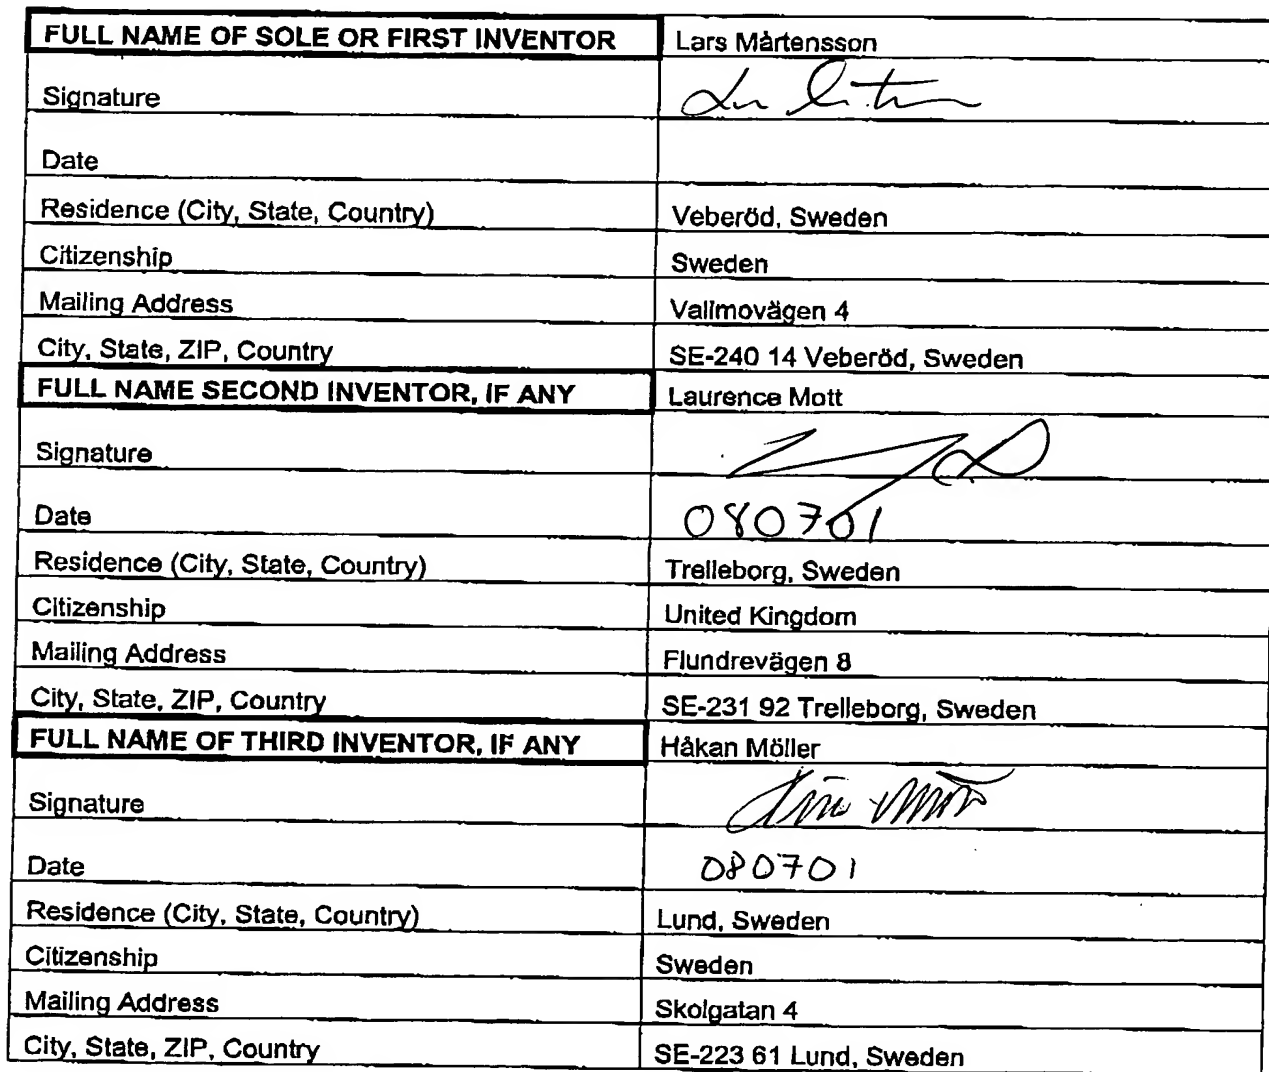 FULL NAME OF SOLE OR FIRST INVENTOR Lars Mårtensson
Signature
Date
Residence (City, State, Country) Veberöd, Sweden
Citizenship Sweden
Mailing Address Vallmovägen 4
City, State, ZIP, Country SE-240 14 Veberöd, Sweden
FULL NAME SECOND INVENTOR, IF ANY Laurence Mott
Signature
Date 080701
Residence (City, State, Country) Trelleborg, Sweden
Citizenship United Kingdom
Mailing Address Flundrevägen 8
City, State, ZIP, Country SE-231 92 Trelleborg, Sweden
FULL NAME OF THIRD INVENTOR, IF ANY Håkan Möller
Signature
Date 080701
Residence (City, State, Country) Lund, Sweden
Citizenship Sweden
Mailing Address Skolgatan 4
City, State, ZIP, Country SE-223 61 Lund, Sweden